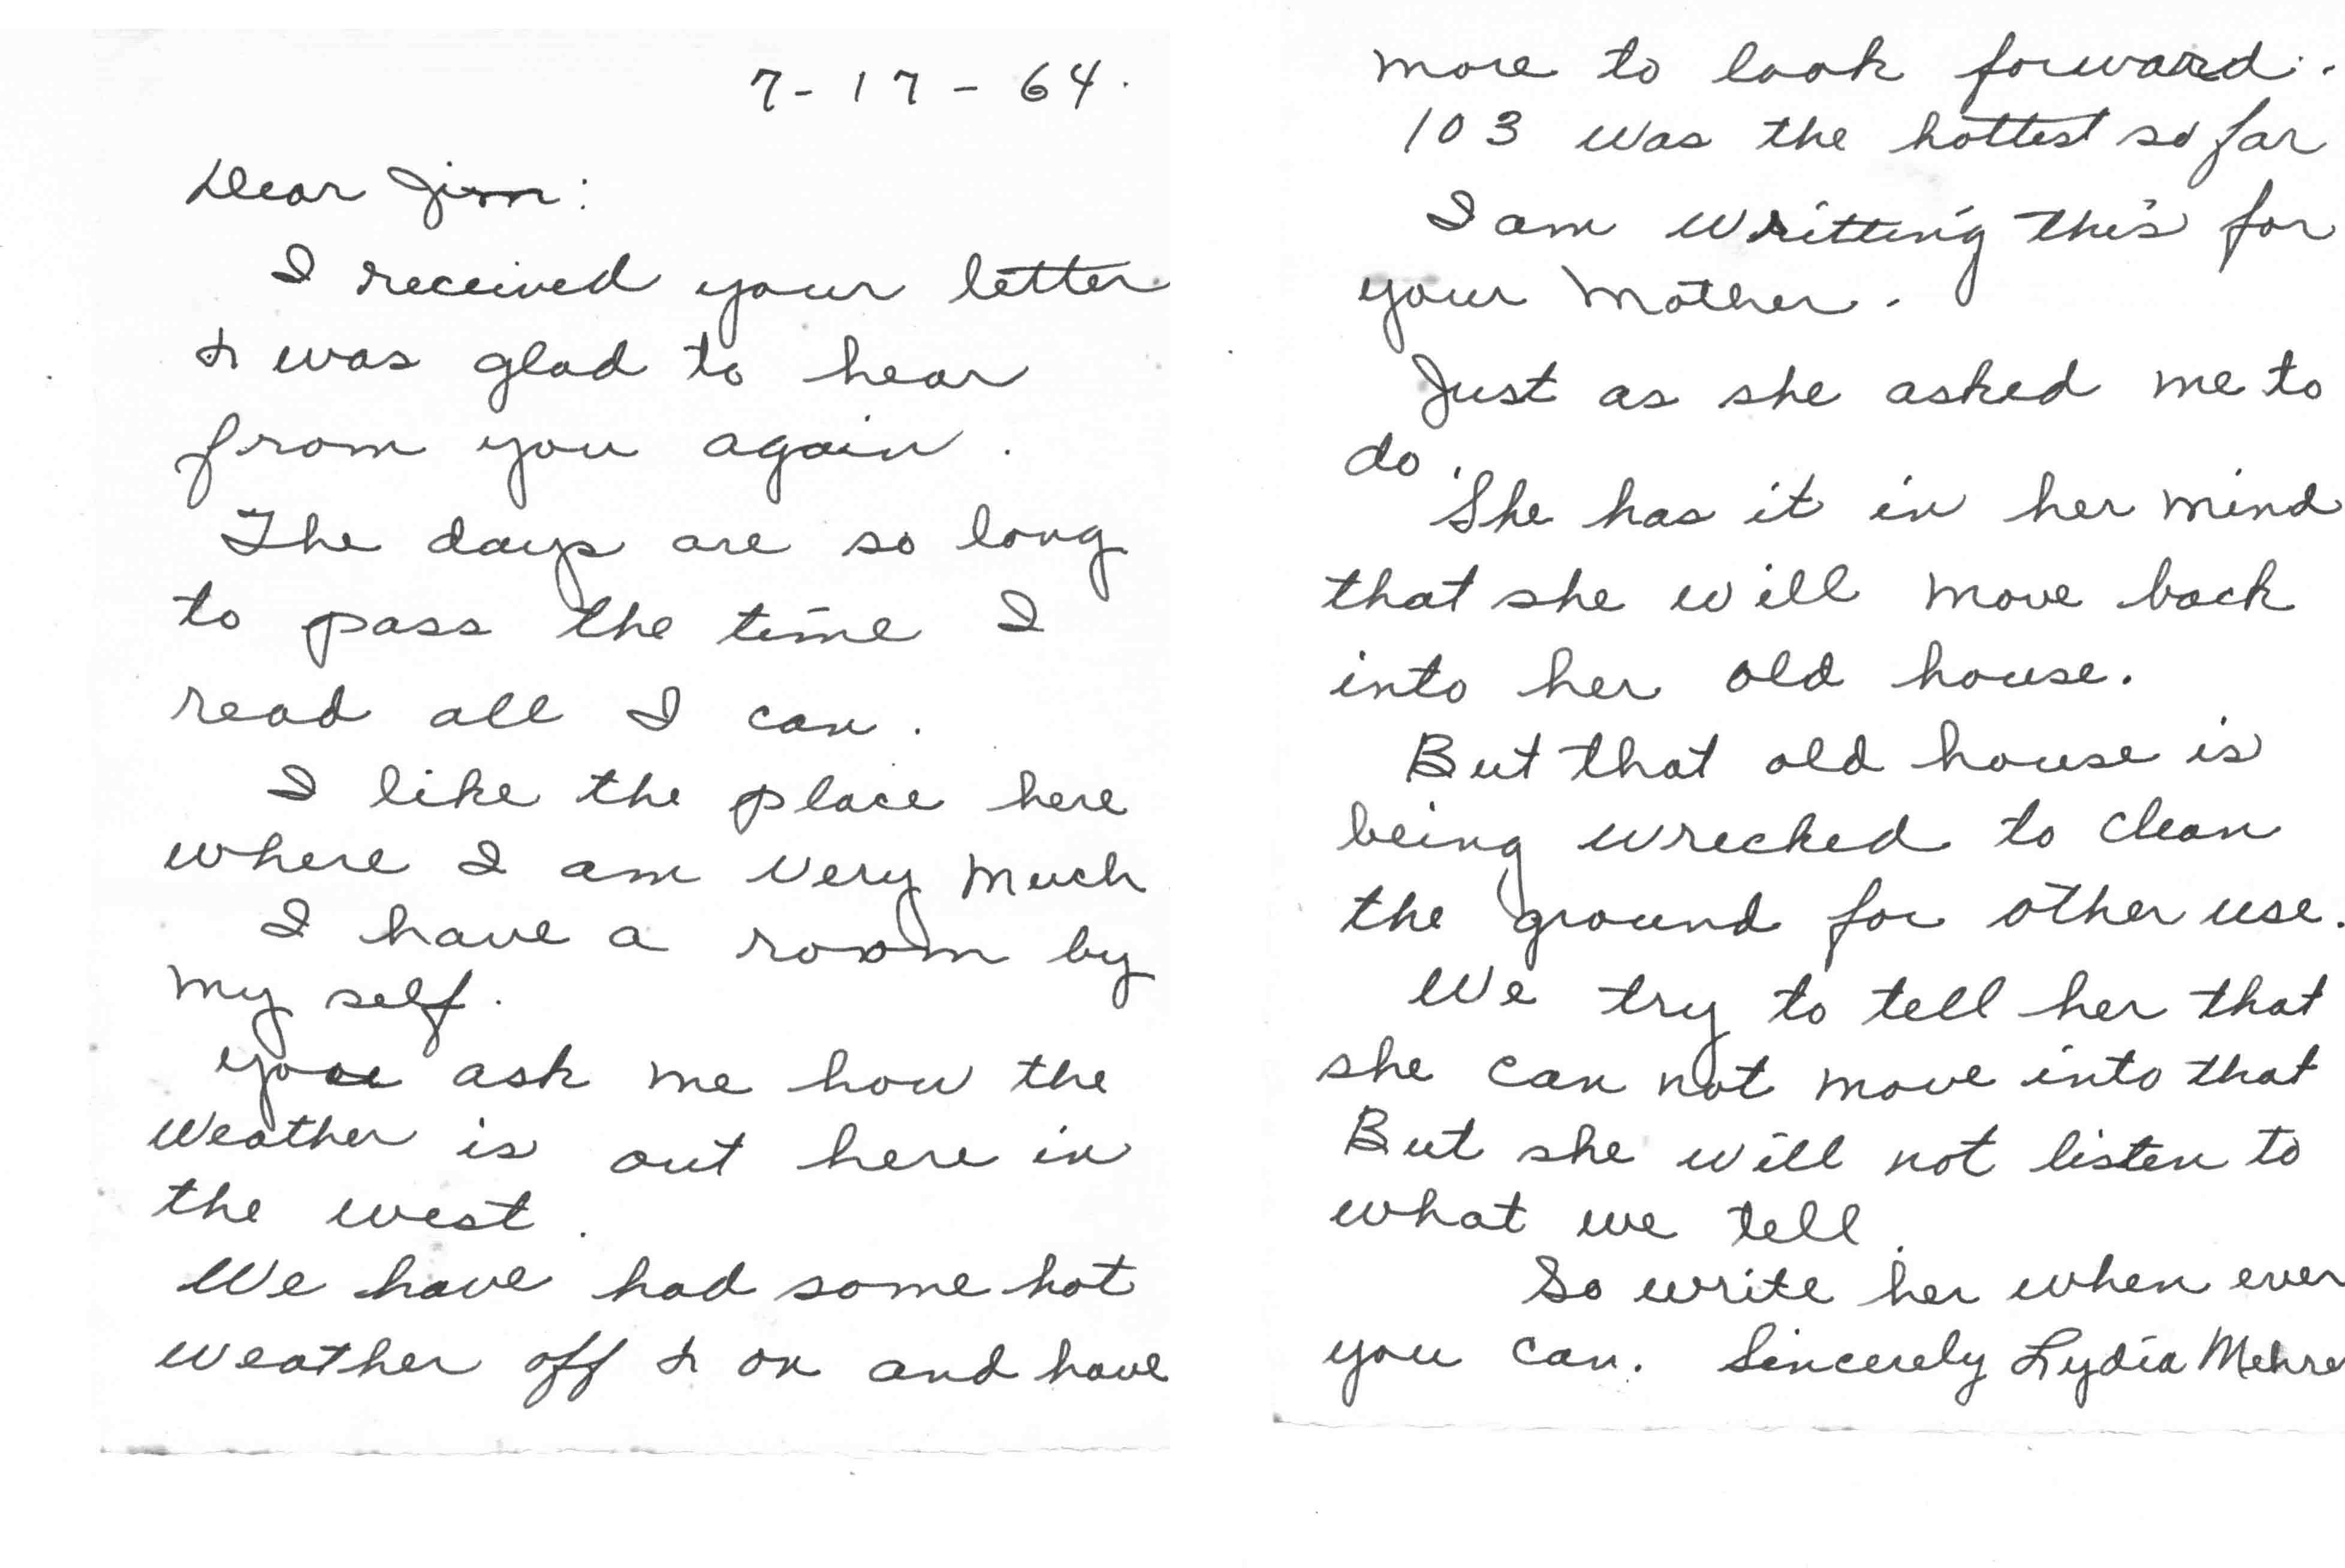 7-17-64.
Dear Jim:
I received your letter
& was glad to hear
from you again.
The days are so long
to pass the time I
read all I can.
I like the place here
where I am very much
I have a room by
my self.
you ask me how the
weather is out here in
the west.
We have had some hot
weather off & on and have
more to look forward.
103 was the hottest so far
I am writting this for
your Mother.
Just as she asked me to
do.
She has it in her mind
that she will move back
into her old house.
But that old house is
being wrecked to clean
the ground for other use.
We try to tell her that
she can not move into that
But she will not listen to
what we tell.
So write her when ever
you can. Sincerely Lydia Mehre